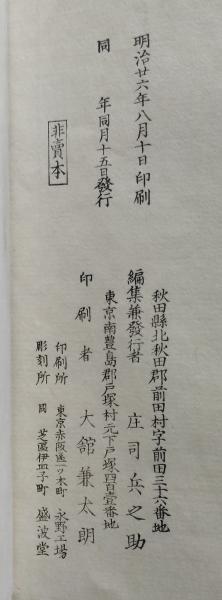 明治廿六年八月十日印刷
同年同月十五日發行
非賣本
秋田縣北秋田郡前田村字前田三十六番地
編集兼發行者 庄司兵之助
東京南豊島郡戸塚村元下戸塚四百壹番地
印刷者 大舘兼太朗
印刷所 東京赤阪區一ツ木町 永野工場
彫刻所 同 芝區伊皿子町 盛波堂